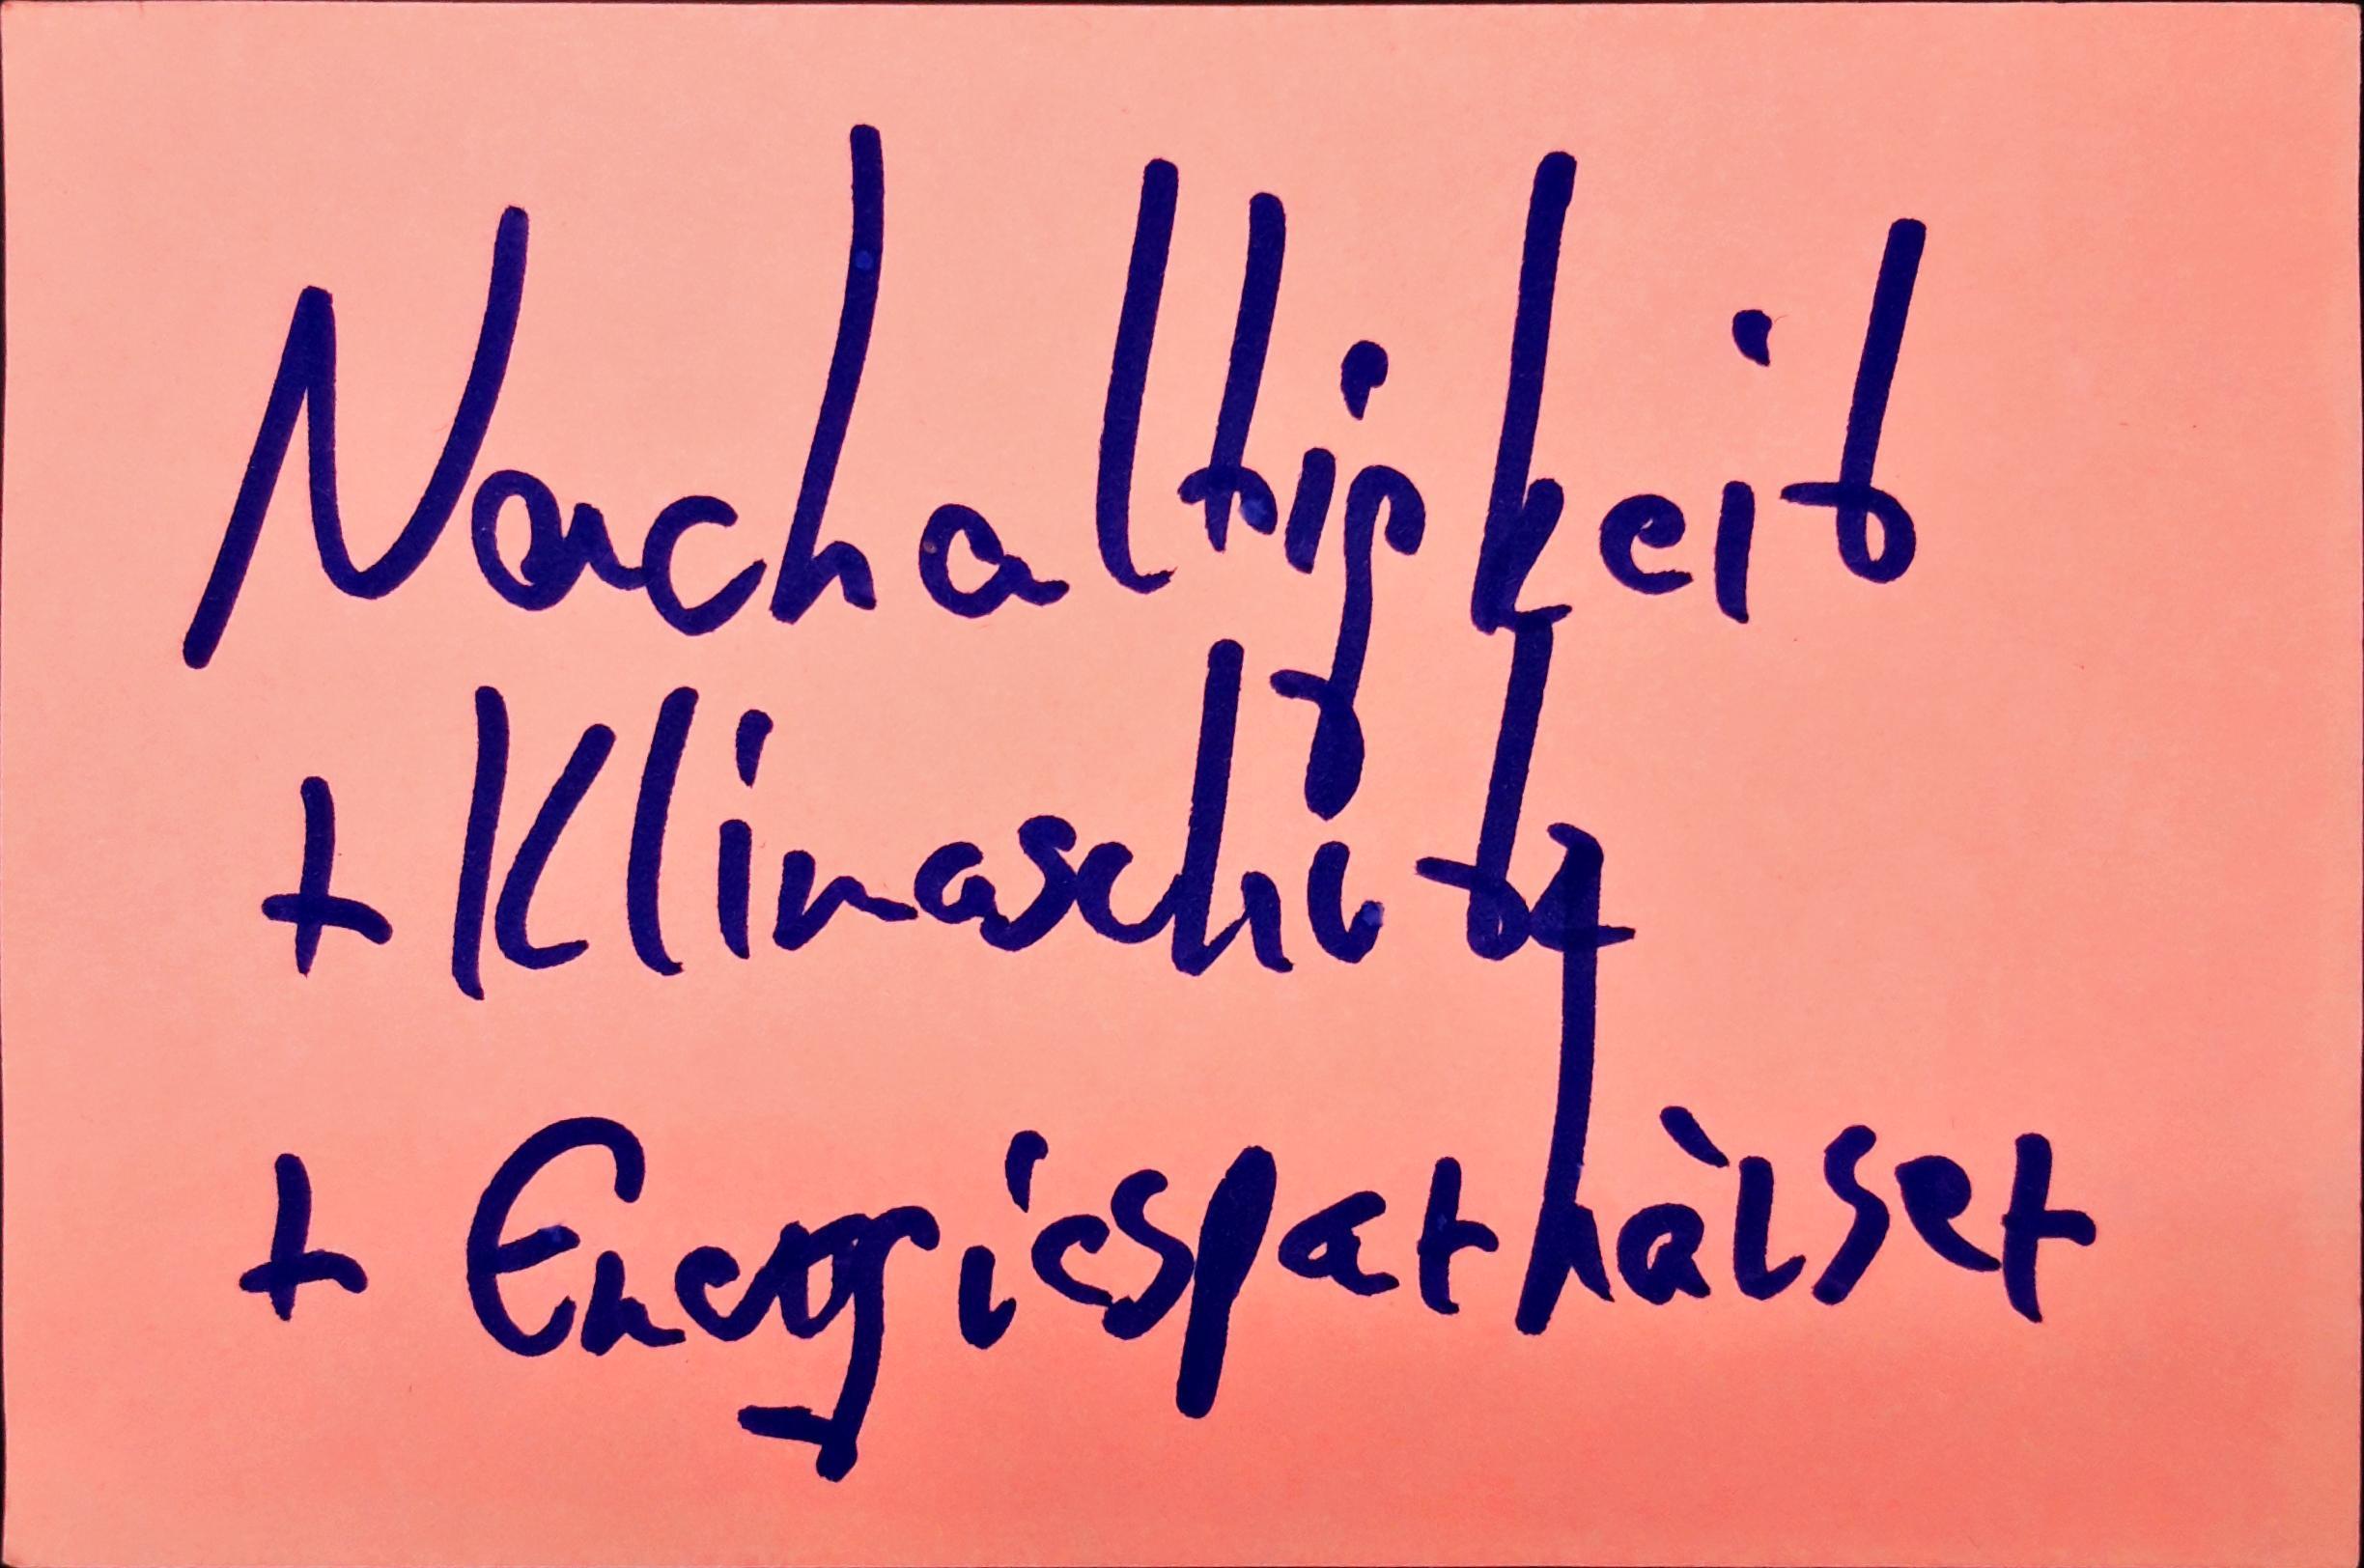 Nachaltigkeit
+ Klimaschutz
+ Energiesparhäuser